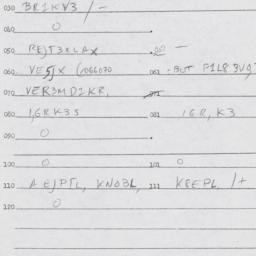 030 BR1KV3 / -
040 0
050 REJT3RLAX 051 -
060 VE5JX (066070 061 - BUT F1L8
070 VER3MD1KR, 071
080 1,6RK35 081 16R, K3
090 0
100 0 101 0
110 AEJPTL, KNOBL, 111 KREPL, /+
120 0